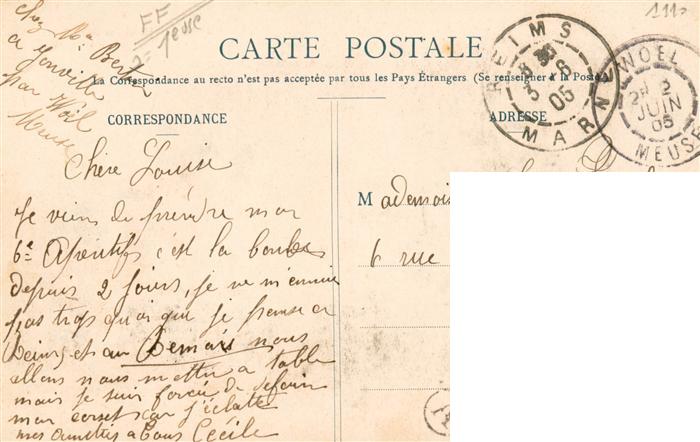 chez Me Berth
a Jonville
par Woël
Meuse
FF
1euse
111
CARTE POSTALE
La Correspondance au recto n'est pas acceptée par tous les Pays Étrangers (Se renseigner à la Poste)
CORRESPONDANCE
ADRESSE
REIMS
3 6
05
MARNE
WOËL
2
JUIN
05
MEUSE
Chère Louise
Je viens de prendre mon
6e Aperitifs c'est la bombe
depuis 2 jours, je ne m'ennuie
pas trop quoi que je pense a
Reims et au Demais nous
allons nous mettre a table
mais je suis forcée de défair
mon corset car j'éclate
mes amitiés a tous Cécile
Mademois
6 rue